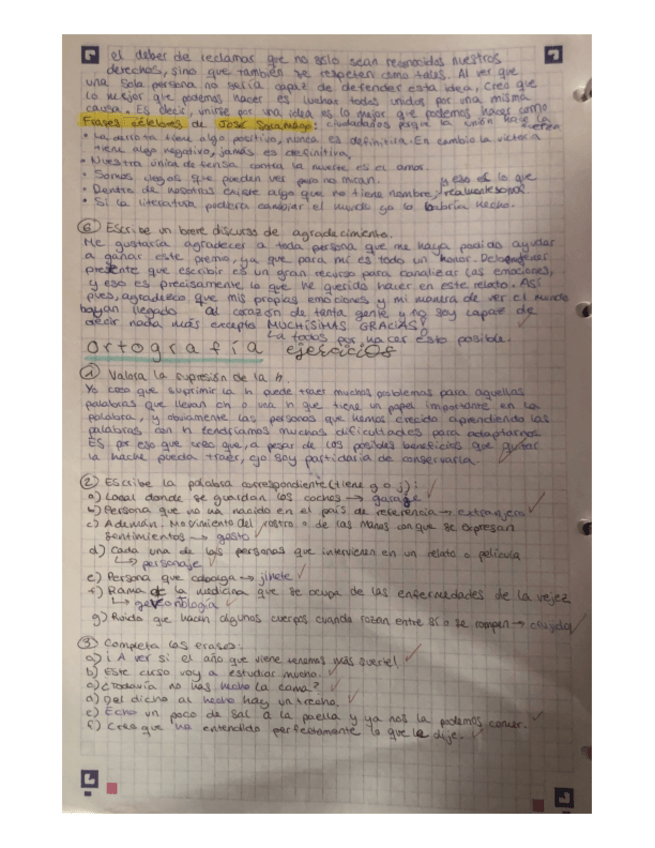 el deber de reclamar que no sólo sean reconocidos nuestros
derechos, sino que también se respeten como tales. Al ver que
una sola persona no sería capaz de defender esta idea, creo que
lo mejor que podemos hacer es luchar todos unidos por una misma
causa. Es decir, unirse por una idea es lo mejor que podemos hacer como
Frases célebres de José Saramago: ciudadanos porque la unión hace la
fuerza
• La derrota tiene algo positivo, nunca es definitiva. En cambio la victoria
tiene algo negativo, jamás es definitiva.
• Nuestra única defensa contra la muerte es el amor.
• Somos ciegos que pueden ver pero no miran.
y eso es lo que
• Dentro de nosotros existe algo que no tiene nombre, realmente somos.
• Si la literatura pudiera cambiar el mundo ya lo habría hecho.
6 Escribe un breve discurso de agradecimiento.
Me gustaría agradecer a toda persona que me haya podido ayudar
a ganar este premio, ya que para mí es todo un honor. Debo tener
presente que escribir es un gran recurso para canalizar las emociones,
y eso es precisamente lo que he querido hacer en este relato. Así
pues, agradezco que mis propias emociones y mi manera de ver el mundo
hayan llegado al corazón de tanta gente y no soy capaz de
decir nada más excepto MUCHÍSIMAS GRACIAS!
a todos por hacer esto posible.
Ortografía ejercicios
1 Valora la supresión de la h.
Yo creo que suprimir la h puede traer muchos problemas para aquellas
palabras que llevan ch o una h que tiene un papel importante en la
palabra, y obviamente las personas que hemos crecido aprendiendo las
palabras con h tendríamos muchas dificultades para adaptarnos.
ES por eso que creo que, a pesar de los posibles beneficios que quitar
la hache pueda traer, yo soy partidaria de conservarla.
2 Escribe la palabra correspondiente (tiene g o j):
a) Local donde se guardan los coches → garaje
b) Persona que no ha nacido en el país de referencia → extranjero
c) Ademán. Movimiento del rostro o de las manos con que se expresan
sentimientos → gesto
d) Cada una de las personas que intervienen en un relato o película
↳ personaje
e) Persona que cabalga → jinete
f) Rama de la medicina que se ocupa de las enfermedades de la vejez
↳ gerontología
g) Ruido que hacen algunos cuerpos cuando rozan entre sí o se rompen → crujido
3 Completa las frases:
a) ¡A ver si el año que viene tenemos más suerte!
b) Este curso voy a estudiar mucho.
c) ¿Todavía no has hecho la cama?
d) Del dicho al hecho hay un trecho.
e) Echo un poco de sal a la paella y ya nos la podemos comer.
f) Creo que ha entendido perfectamente lo que le dije.